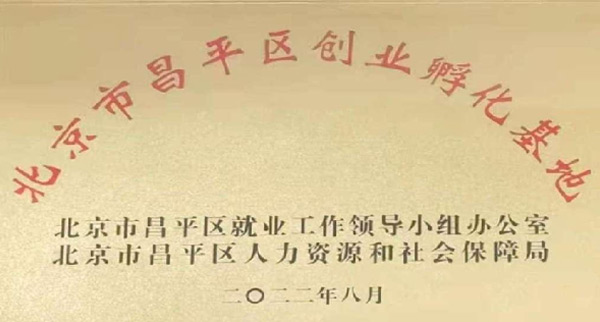 北京市昌平区创业孵化基地
北京市昌平区就业工作领导小组办公室
北京市昌平区人力资源和社会保障局
二〇二二年八月